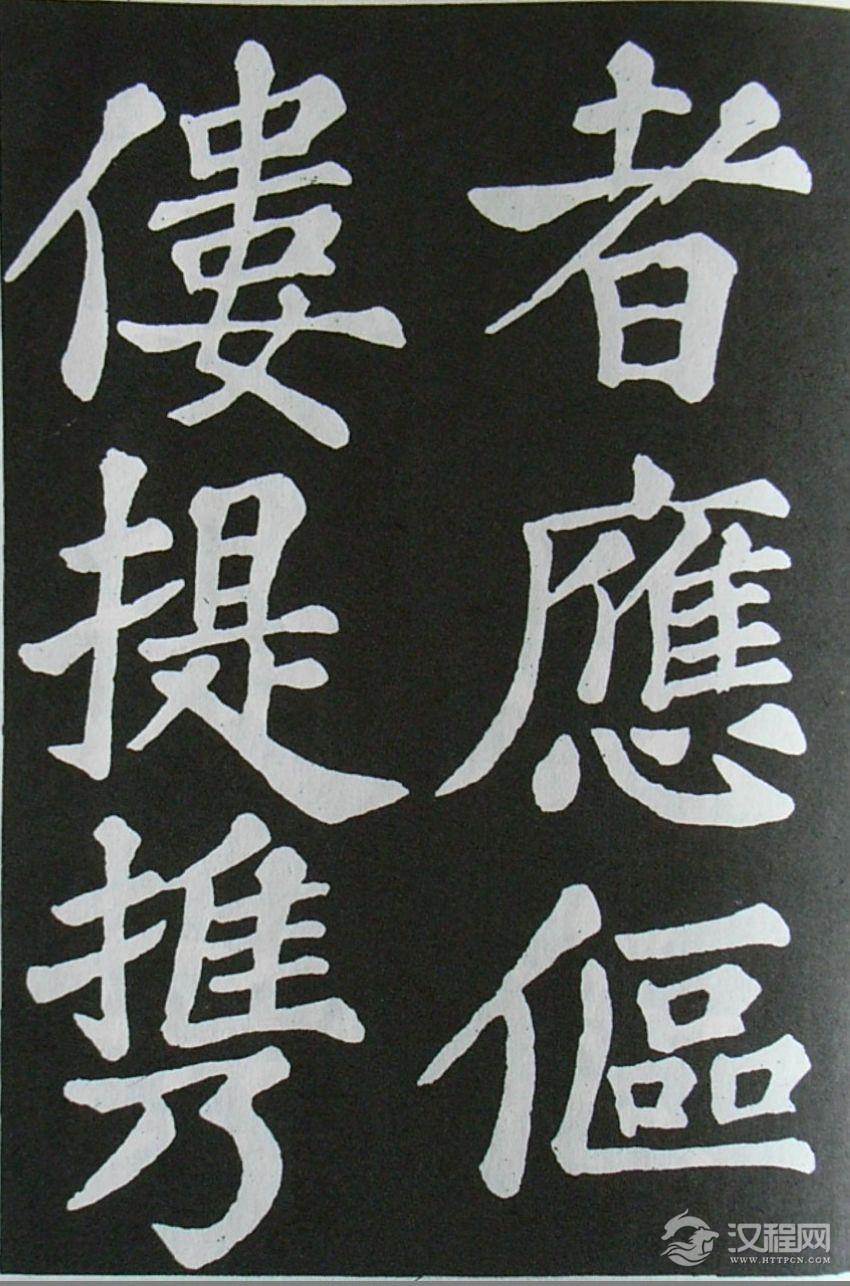 者應傴
僂提攜
汉程网
WWW.HTTPCN.COM